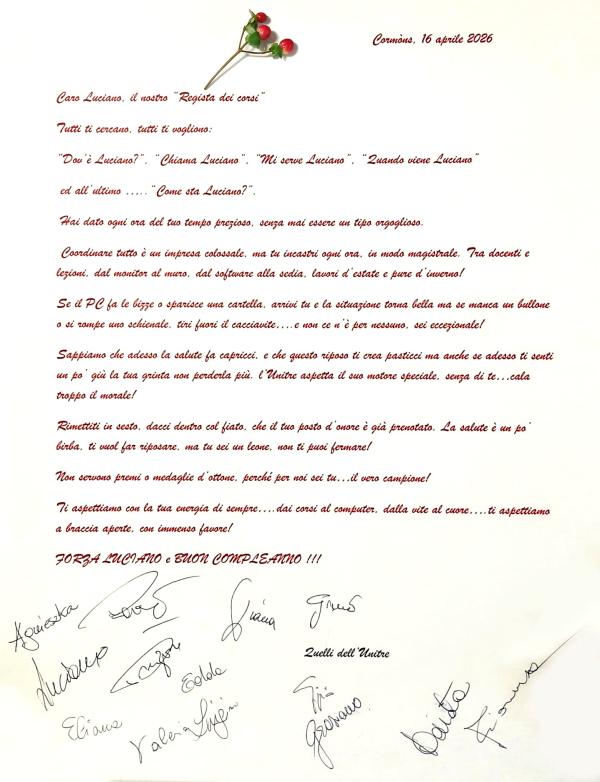 Cormòns, 16 aprile 2026
Caro Luciano, il nostro "Regista dei corsi"
Tutti ti cercano, tutti ti vogliono:
"Dov'è Luciano?", "Chiama Luciano", "Mi serve Luciano", "Quando viene Luciano"
ed all'ultimo ....."Come sta Luciano?".
Hai dato ogni ora del tuo tempo prezioso, senza mai essere un tipo orgoglioso.
Coordinare tutto è un impresa colossale, ma tu incastri ogni ora, in modo magistrale. Tra docenti e
lezioni, dal monitor al muro, dal software alla sedia, lavori d'estate e pure d'inverno!
Se il PC fa le bizze o sparisce una cartella, arrivi tu e la situazione torna bella ma se manca un bullone
o si rompe uno schienale, tiri fuori il cacciavite....e non ce n'è per nessuno, sei eccezionale!
Sappiamo che adesso la salute fa capricci, e che questo riposo ti crea pasticci ma anche se adesso ti senti
un po' giù la tua grinta non perderla più, l'Unitre aspetta il suo motore speciale, senza di te...cala
troppo il morale!
Rimettiti in sesto, dacci dentro col fiato, che il tuo posto d'onore è già prenotato. La salute è un po'
birba, ti vuol far riposare, ma tu sei un leone, non ti puoi fermare!
Non servono premi o medaglie d'ottone, perché per noi sei tu...il vero campione!
Ti aspettiamo con la tua energia di sempre....dai corsi al computer, dalla vite al cuore....ti aspettiamo
a braccia aperte, con immenso favore!
FORZA LUCIANO e BUON COMPLEANNO !!!
Agnieszka
Luciano
Quelli dell'Unitre
Eliana
Valeria Luigi
Graziano